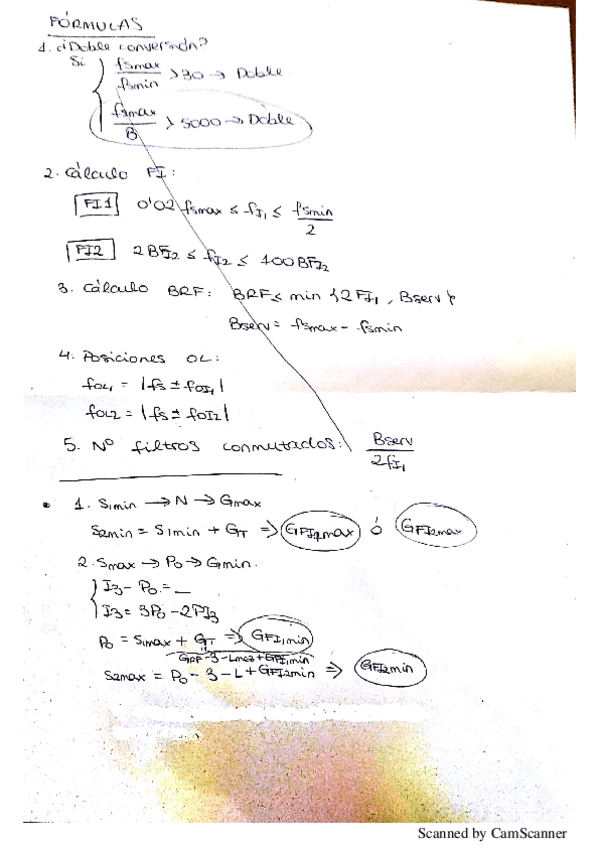 FÓRMULAS
1. ¿Doble conversión?
Si { fsmax/fsmin > 30 → Doble
fsmax/B > 5000 → Doble
2. Cálculo FI:
FI1 0'02 fsmax ≤ fI1 ≤ fsmin/2
FI2 2BFI2 ≤ fI2 ≤ 400BFI2
3. Cálculo BRF: BRF ≤ min {2FI1, Bserv}
Bserv = fsmax - fsmin
4. Posiciones OL:
foL1 = |fs ± foI1|
foL2 = |fs ± foI2|
5. Nº filtros conmutados: Bserv/2fI1
• 1. S1min → N → Gmax
S2min = S1min + GT ⇒ GFI1max ó GFI2max
2. Smax → Po → Gmin.
{ I3 - Po = _
I3 = 3Po - 2PI3
Po = S1max + GT ⇒ GFI1min
GRF - 3 - Lmez + GFI1min
S2max = Po - 3 - L + GFI2min ⇒ GFI2min
Scanned by CamScanner